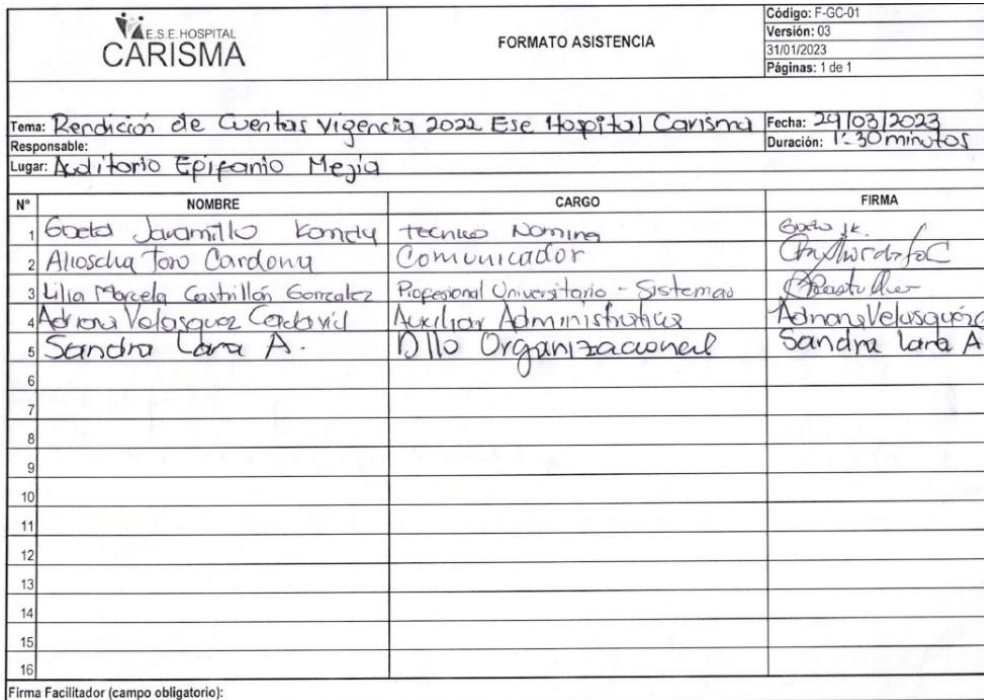 E.S.E. HOSPITAL
CARISMA
FORMATO ASISTENCIA
Código: F-GC-01
Versión: 03
31/01/2023
Páginas: 1 de 1
Tema: Rendición de Cuentas Vigencia 2022 Ese Hospital Carisma
Fecha: 29/03/2023
Responsable:
Duración: 1:30 minutos
Lugar: Auditorio Epifanio Mejia
N° NOMBRE CARGO FIRMA
1 Jaramillo tecnico Nomina
2 Alioscha Toro Cardona Comunicador
3 Lilia Marcela Castrillón Gonzalez Profesional Universitario - Sistemas
4 Adriana Velasquez Cadavid Auxiliar Administrativa Adriana Velasquez C
5 Sandra Lara A. Dllo Organizacional Sandra Lara A
6
7
8
9
10
11
12
13
14
15
16
Firma Facilitador (campo obligatorio):